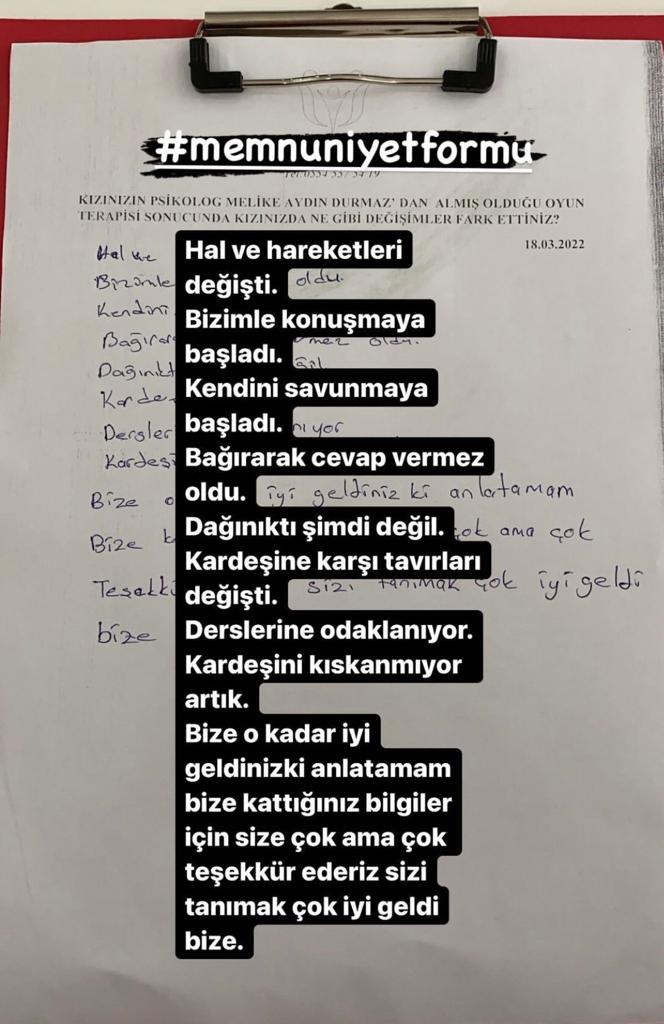 #memnuniyetformu
KIZINIZIN PSİKOLOG MELİKE AYDIN DURMAZ' DAN ALMIŞ OLDUĞU OYUN
TERAPİSİ SONUCUNDA KIZINIZDA NE GİBİ DEĞİŞİMLER FARK ETTİNİZ?
18.03.2022
Hal ve hareketleri
değişti.
Bizimle konuşmaya
başladı.
Kendini savunmaya
başladı.
Bağırarak cevap vermez
oldu.
Dağınıktı şimdi değil.
Kardeşine karşı tavırları
değişti.
Derslerine odaklanıyor.
Kardeşini kıskanmıyor
artık.
Bize o kadar iyi
geldinizki anlatamam
bize kattığınız bilgiler
için size çok ama çok
teşekkür ederiz sizi
tanımak çok iyi geldi
bize.
Hal ve
Bizimle oldu.
Kendini
oldu.
Dersler
Bize iyi geldiniz ki anlatamam
Bize çok ama çok
sizi tanımak çok iyi geldi
bize